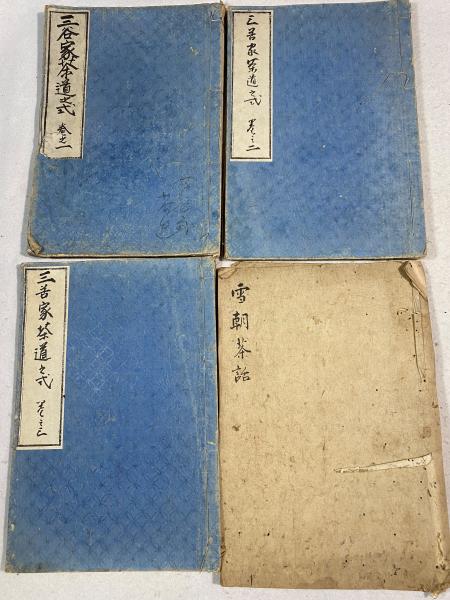 三谷家茶道之式 巻之一
三苫家茶道之式 巻之二
三苫家茶道之式 巻之三
雪朝茶話